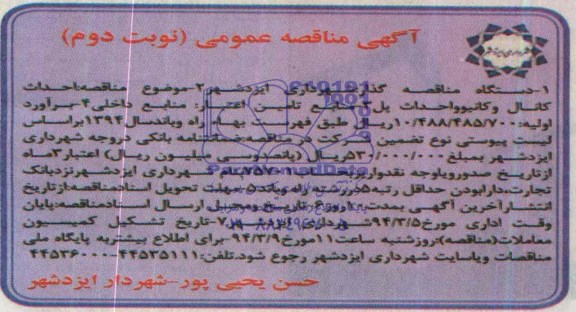 آگهی مناقصه عمومی (نوبت دوم)
شهرداری ایزدشهر
۱-دستگاه مناقصه گذار:شهرداری ایزدشهر۲-موضوع مناقصه:احداث
کانال وکانیوواحداث پل۳-منابع تامین اعتبار: منابع داخلی۴-برآورد
اولیه:۱۰/۴۸۸/۴۸۵/۷۰۰ریال طبق فهرست بهاء راه وباندسال۱۳۹۴براساس
لیست پیوستی نوع تضمین شرکت در مناقصه:ضمانتنامه بانکی دروجه شهرداری
ایزدشهر بمبلغ ۵۳۰/۰۰۰/۰۰۰ریال (پانصدوسی میلیون ریال) اعتبار۳ماه
ازتاریخ صدورویاوجه نقدواریز شهرداری ایزدشهرنزدبانک
تجارت:دارابودن حداقل رتبه۵دررشته راه وباند۵-مهلت تحویل اسنادمناقصه:ازتاریخ
انتشارآخرین آگهی بمدت روز تاریخ ومحل ارسال اسنادمناقصه:پایان
وقت اداری مورخ۹۴/۳/۵شهرداری ایزدشهر۷-تاریخ تشکیل کمسیون
معاملات(مناقصه):روزشنبه ساعت۱۱مورخ۹۴/۳/۹-برای اطلاع بیشتربه پایگاه ملی
مناقصات ویاسایت شهرداری ایزدشهر رجوع شود.تلفن:۴۴۵۳۵۱۱۱-۴۴۵۳۶۰۰۰
حسن یحیی پور-شهردار ایزدشهر
ParsNamadData